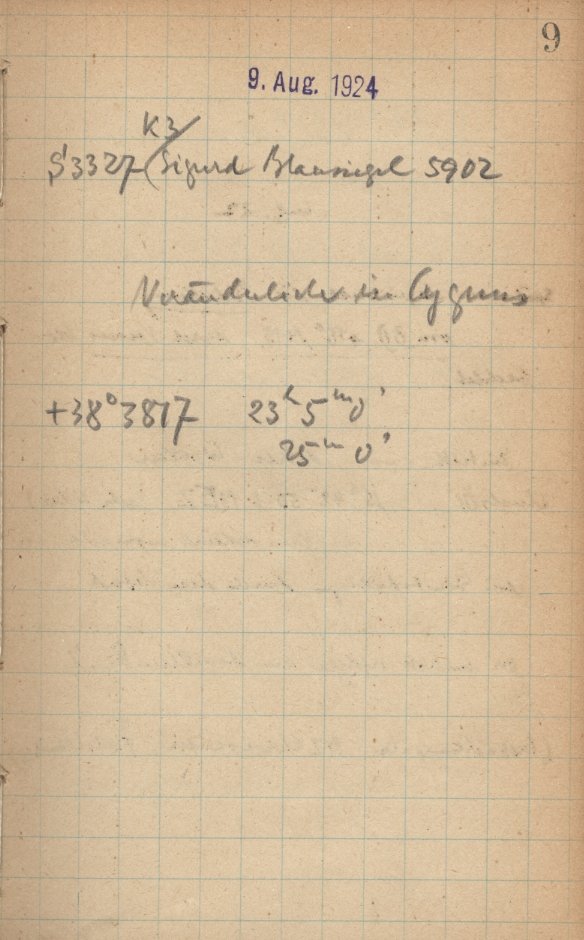 9
9. Aug. 1924
K3
S3327 (Sigurd Blausiegel 5902
Veränderliche in Cygnus
+38° 3817 23h 5m 0'
25m 0'